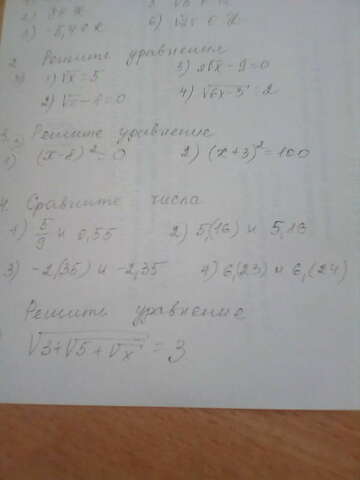 2. Решите уравнения
1) √x = 5 3) 2√x - 9 = 0
2) √x - 1 = 0 4) √6x-3 = 2
Решите уравнение
1) (x-8)² = 0 2) (x+3)² = 100
4. Сравните числа
1) 5/9 и 0,55 2) 5,(16) и 5,16
3) -2,(35) и -2,35 4) 6,(23) и 6,(24)
Решить уравнение
√3+√5+√x = 3